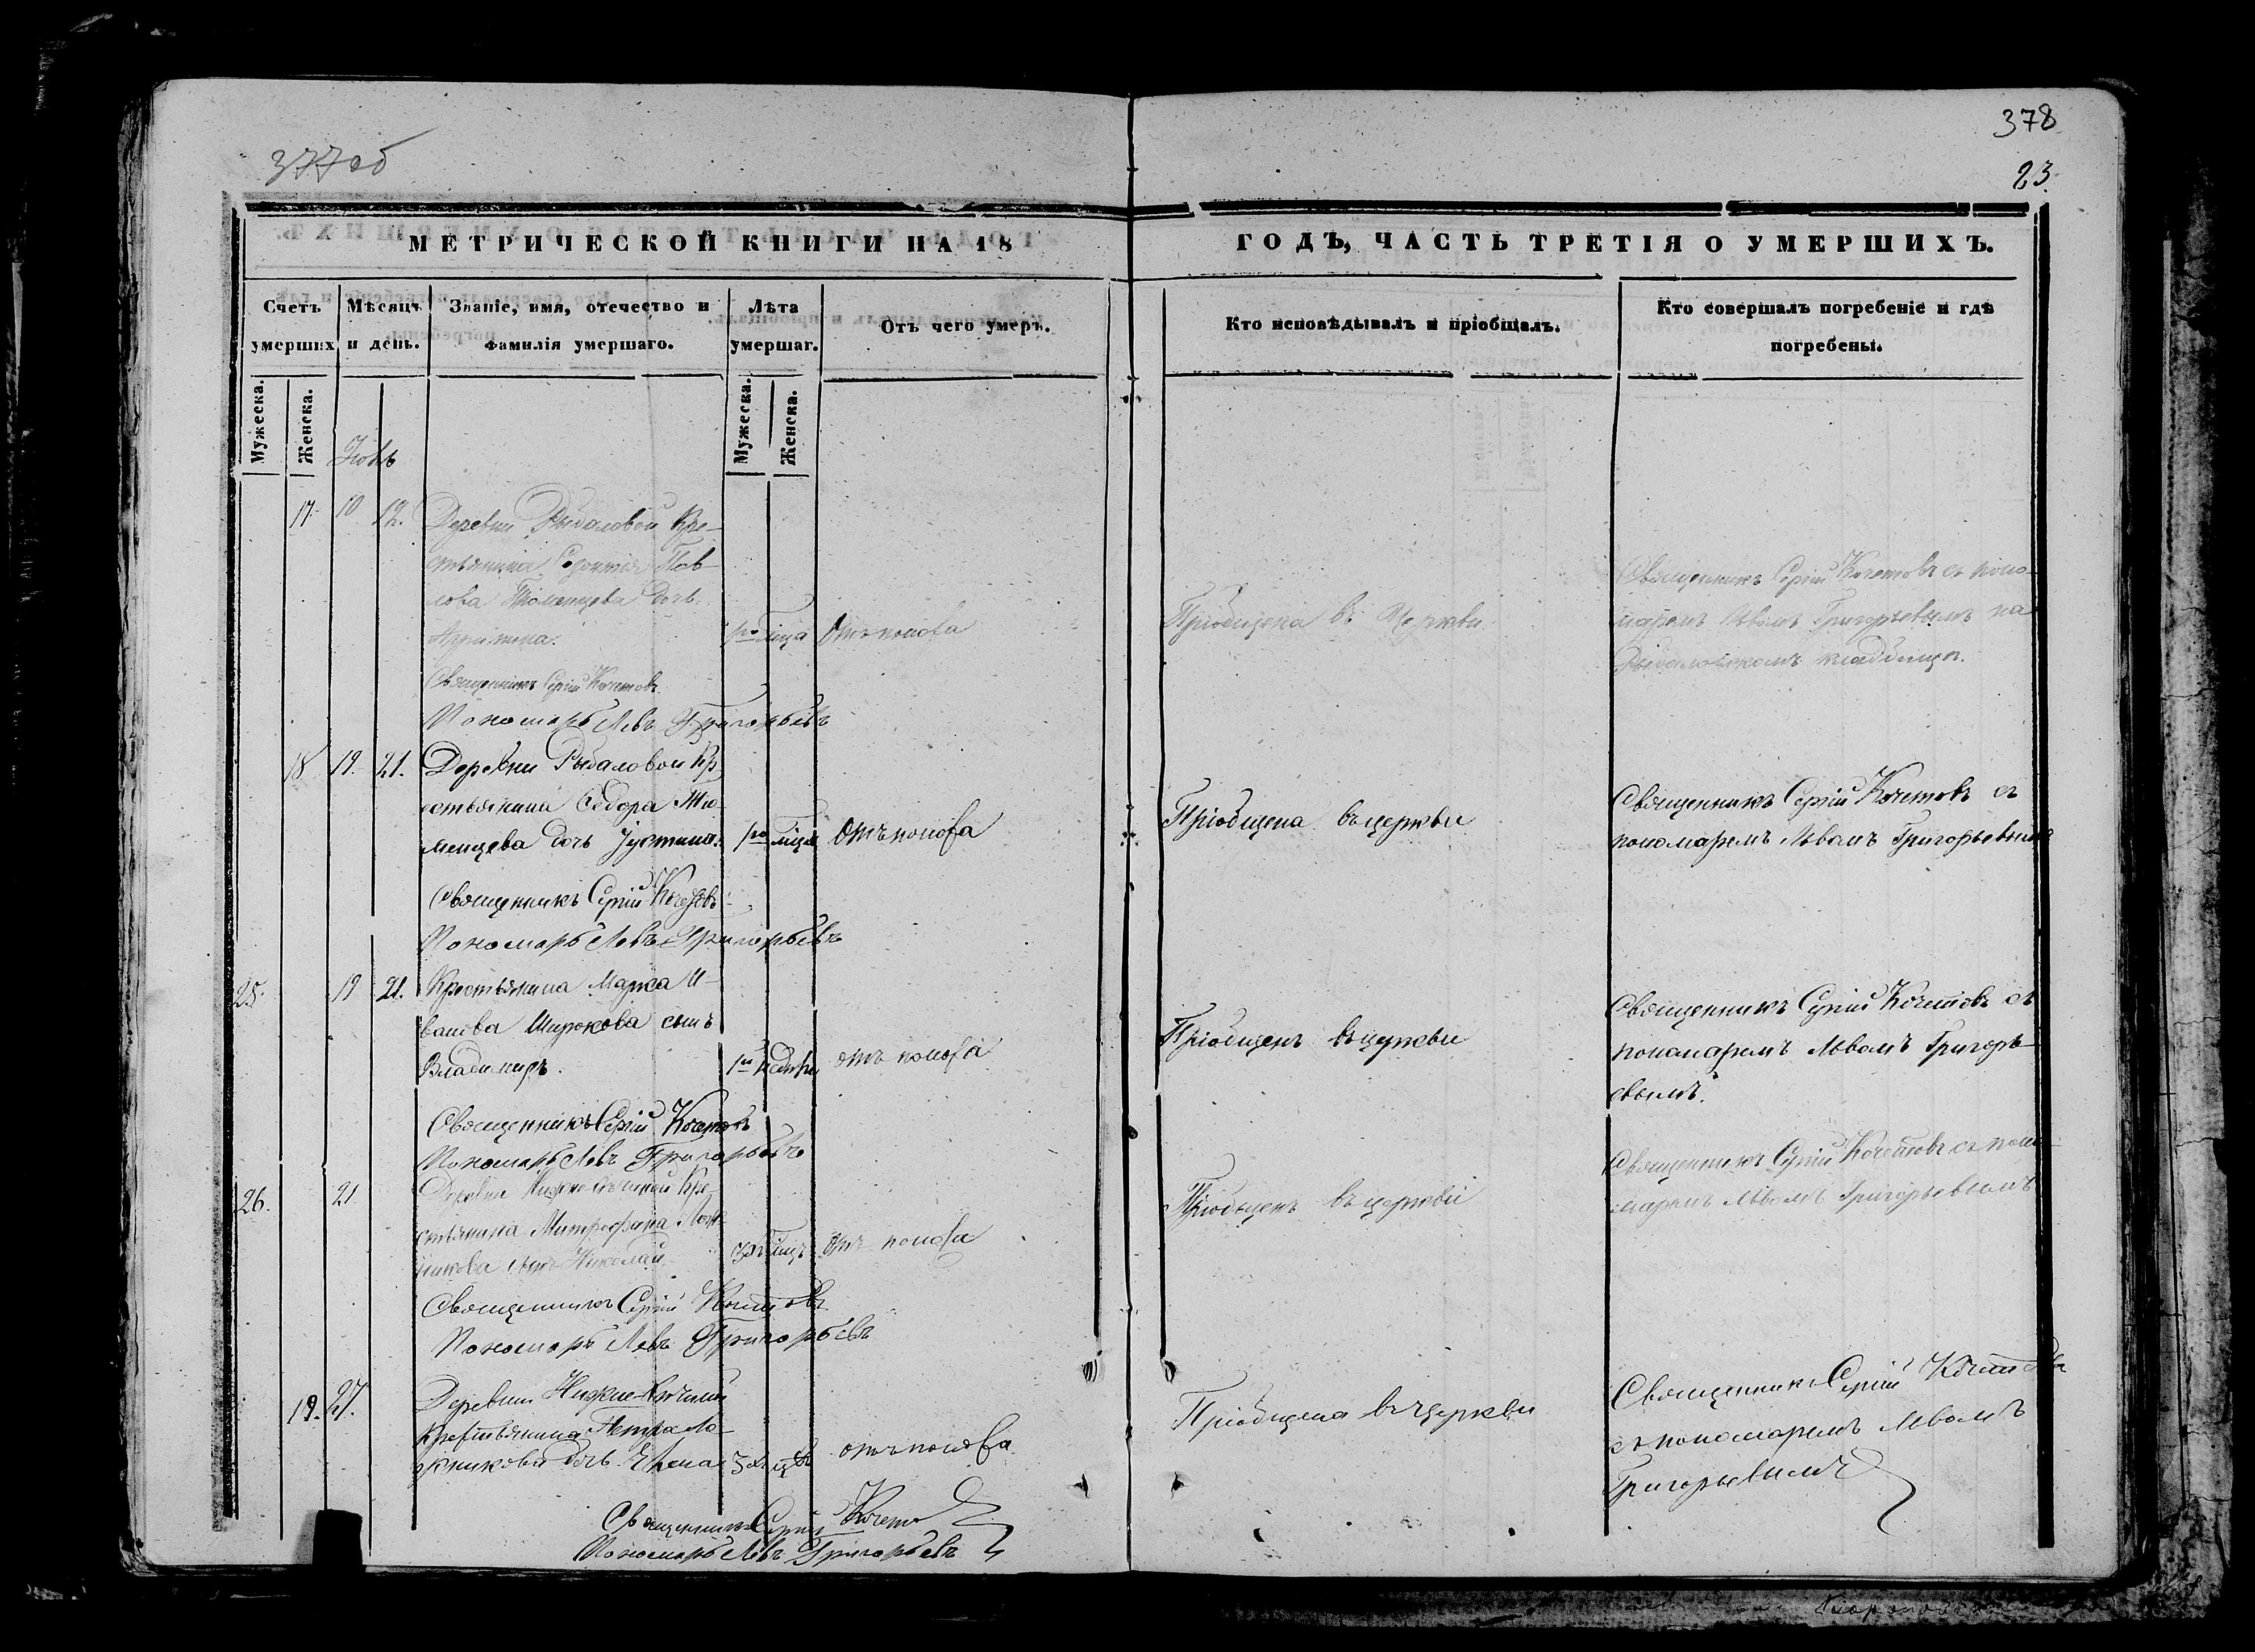 377об
378
23
МЕТРИЧЕСКОЙ КНИГИ НА 18
ГОДЪ, ЧАСТЬ ТРЕТІЯ О УМЕРШИХЪ.
Счетъ умерших
Мѣсяцъ и день.
Званіе, имя, отечество и фамилія умершаго.
Лѣта умершаг.
Отъ чего умеръ.
Кто исповѣдывалъ и пріобщалъ.
Кто совершалъ погребеніе и гдѣ погребены.
Мужеска.
Женска.
Мужеска.
Женска.
17. 10 12. Деревни Рыбаловой Кре-
стьянина Павлова
дочь
отъ поноса
Пріобщена въ Церкви
Священникъ Сергій Кочетовъ съ поно-
маремъ Львомъ Григорьевымъ на
Рыбаловскомъ кладбищѣ.
Священникъ Сергій Кочетовъ.
Пономарь Левъ Григорьевъ
18 19. 21. Деревни Рыбаловой Кр
естьянина Ѳедора Тю-
менцева дочь Іустина.
отъ поноса
Пріобщена въ церкви
Священникъ Сергій Кочетовъ съ
пономаремъ Львомъ Григорьевымъ
Священникъ Сергій Кочетовъ
Пономарь Левъ Григорьевъ
25. 19 21. Крестьянина Марка И-
ванова Широкова сынъ
Владимиръ.
отъ поноса
Пріобщенъ въ церкви
Священникъ Сергій Кочетовъ съ
пономаремъ Львомъ Григорь-
евымъ.
Священникъ Сергій Кочетовъ
Пономарь Левъ Григорьевъ
26. 21 Деревни Кре-
стьянина Митрофана Лож-
никова сынъ Николай
отъ поноса
Пріобщенъ въ церкви
Священникъ Сергій Кочетовъ съ поно-
маремъ Львомъ Григорьевымъ
Священникъ Сергій Кочетовъ
Пономарь Левъ Григорьевъ
19. 27. Деревни
крестьянина Петра Ло-
жникова дочь
отъ поноса
Пріобщена въ церкви
Священникъ Сергій Кочетовъ
съ пономаремъ Львомъ
Григорьевымъ
Священникъ Сергій Кочетовъ
Пономарь Левъ Григорьевъ